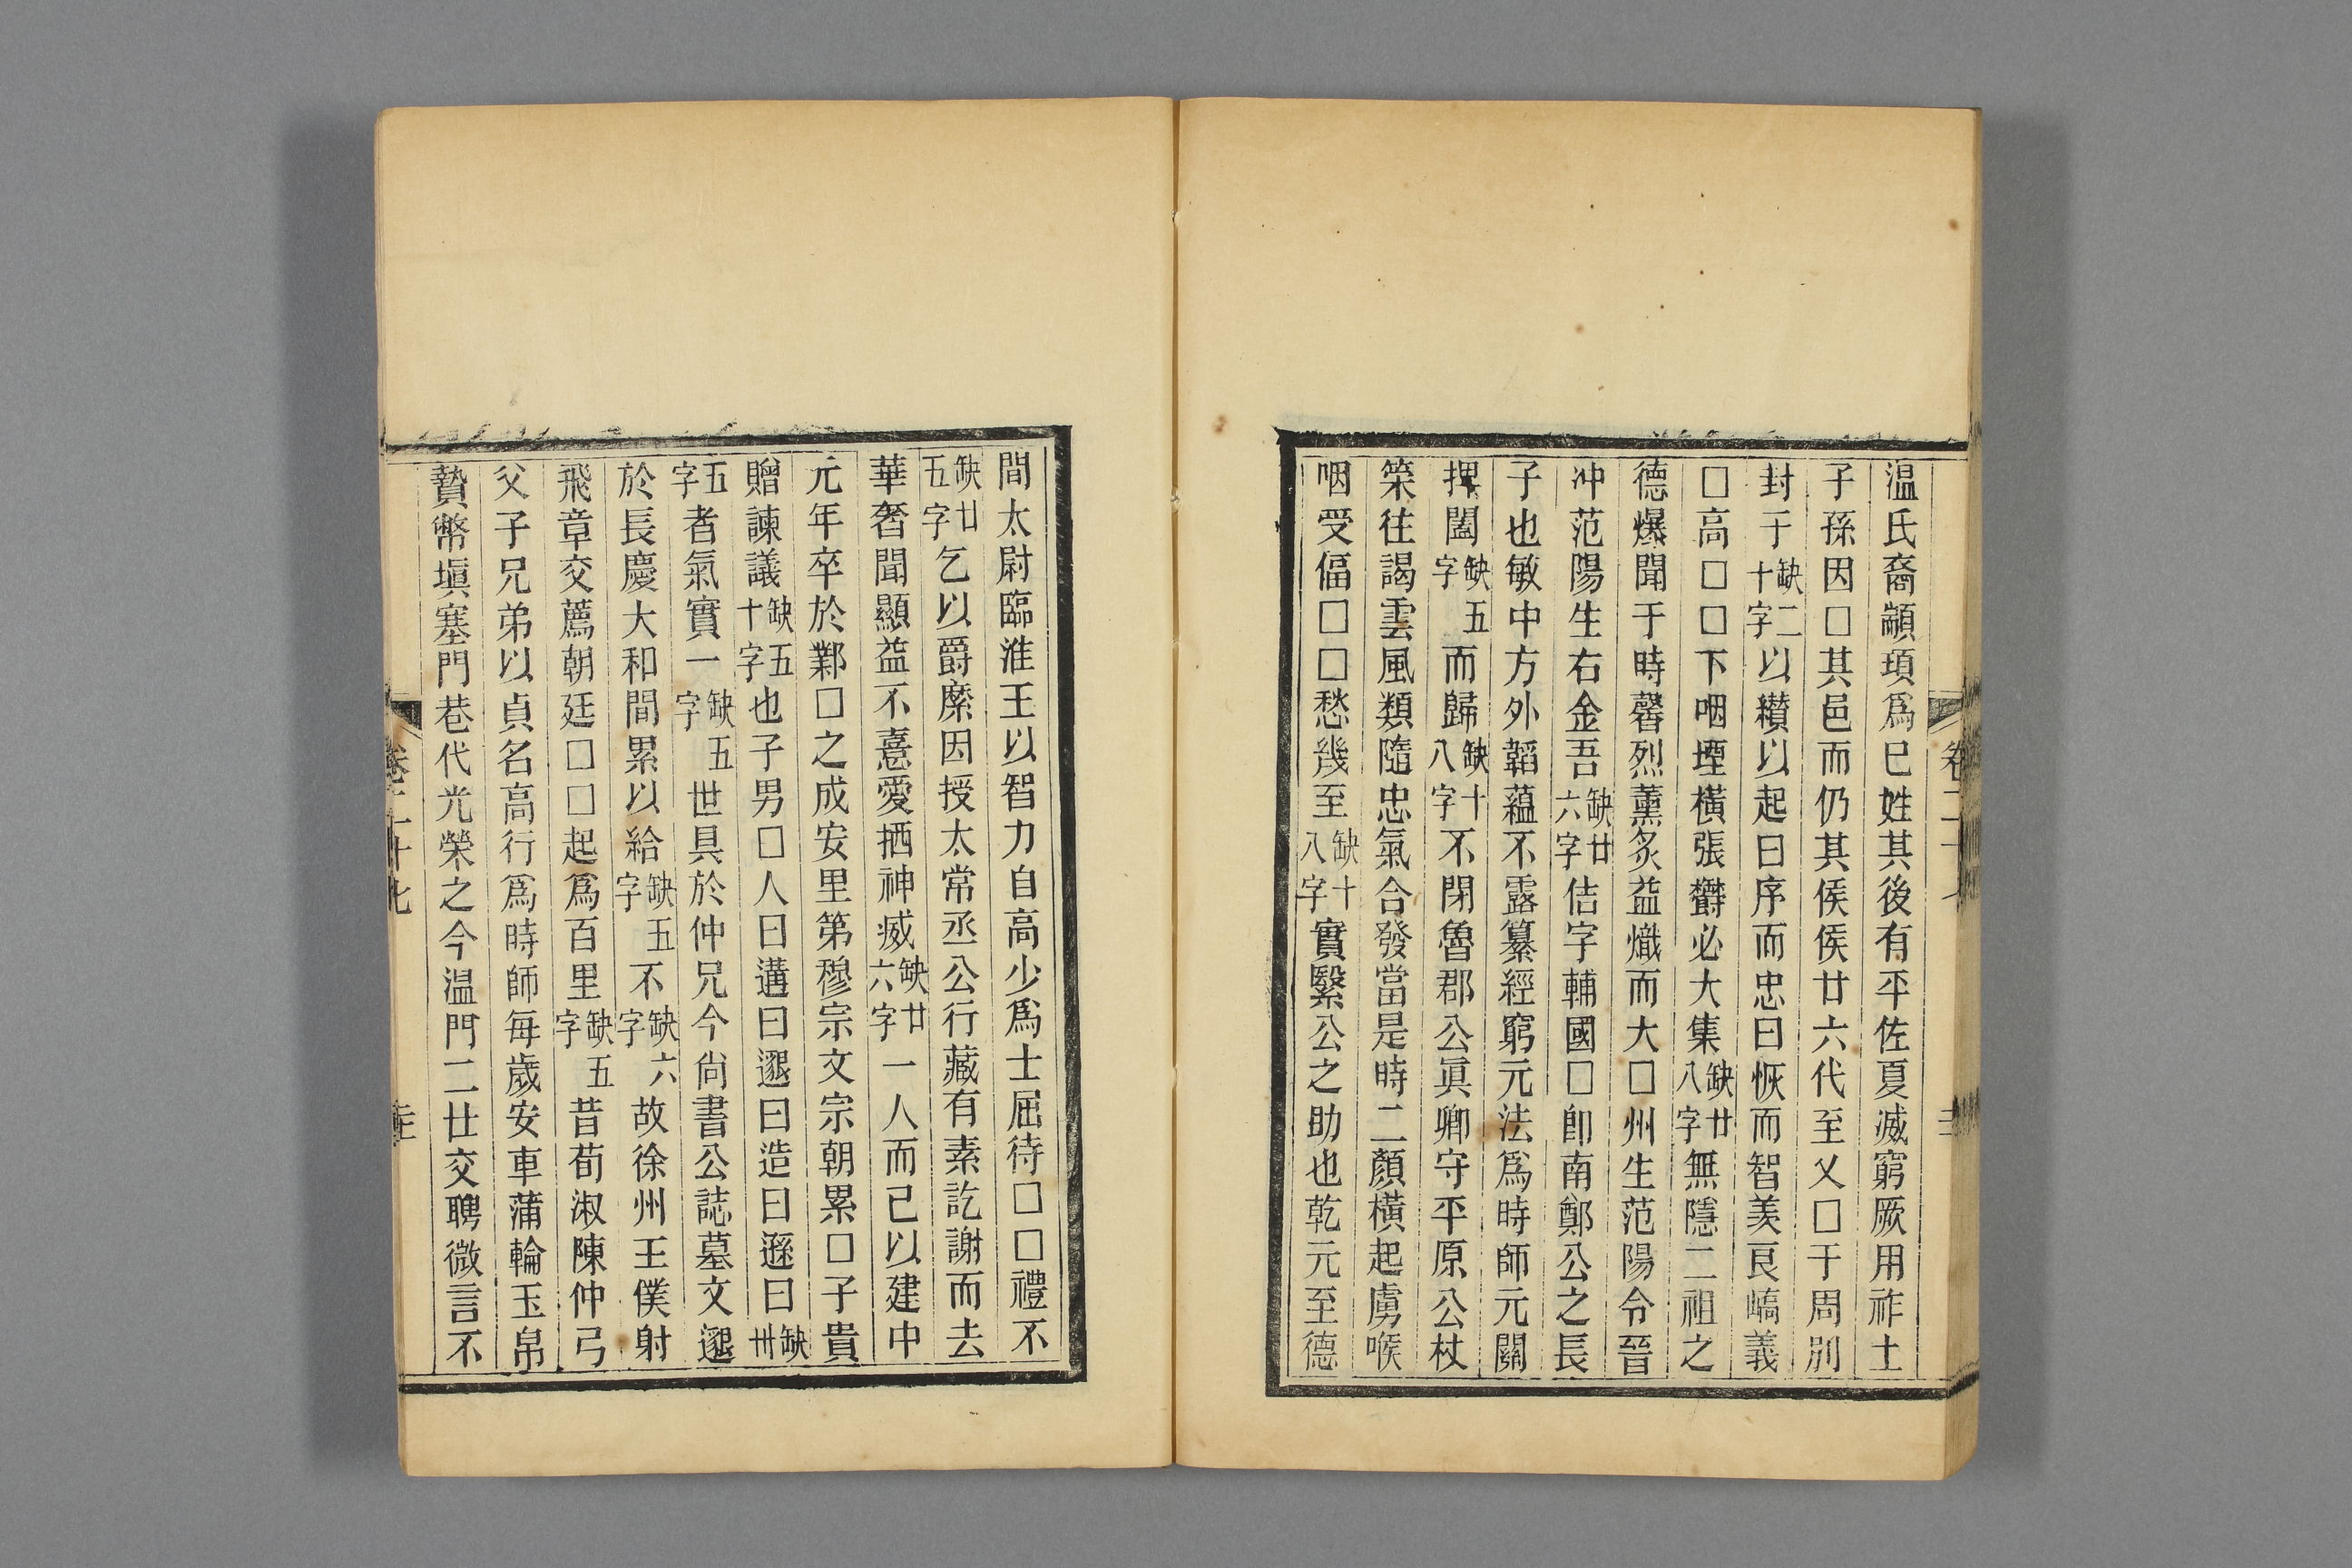 温氏裔顓頊爲巳姓其後有平佐夏滅窮厥用祚土
子孫因□其邑而仍其侯侯廿六代至乂□于周別
封于缺二十字以纘以起曰序而忠曰恢而智美艮嶠義
□高□□下咽堙橫張欝必大集缺廿八字無隱二祖之
德爆聞于時馨烈薰炙益熾而大□州生范陽令晉
冲范陽生右金吾缺廿六字佶字輔國□卽南鄭公之長
子也敏中方外韜蘊不露纂經窮元法爲時師元關
捭闔缺五字而歸缺十八字不閉魯郡公眞卿守平原公杖
筞往謁雲風類隨忠氣合發當是時二顏橫起虜喉
咽受偪□□愁幾至缺十八字實繄公之助也乾元至德
卷二十七
間太尉臨淮王以智力自高少爲士屈待□□禮不
缺廿五字乞以爵縻因授太常丞公行藏有素訖謝而去
華奢聞顯益不憙愛捿神臧缺廿六字一人而已以建中
元年卒於鄴□之成安里第穆宗文宗朝累□子貴
贈諫議缺五十字也子男□人曰遘曰邈曰造曰遜曰缺卅
五字者氣實一缺五字世具於仲兄今尙書公誌墓文邈
於長慶大和間累以給缺五字不缺六字故徐州王僕射
飛章交薦朝廷□□起爲百里缺五字昔荀淑陳仲弓
父子兄弟以貞名高行爲時師每歲安車蒲輪玉帛
贄幣塡塞門巷代光榮之今温門二廿交聘微言不
卷二十七